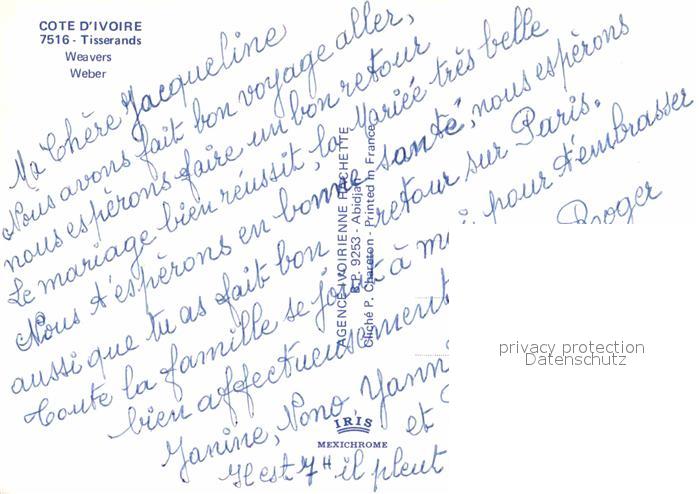 COTE D'IVOIRE
7516 - Tisserands
Weavers
Weber
Ma Chère Jacqueline
Nous avons fait bon voyage aller,
nous espérons faire un bon retour
Le mariage bien réussit, la Mariée très belle
Nous t'espèrons en bonne santé, nous espèrons
aussi que tu as fait bon retour sur Paris.
toute la famille se joint à pour t'embrasser
bien affectueusement Roger
Janine, Nono, Yann
et
Il est 7H il pleut
AGENCE IVOIRIENNE HACHETTE
B.P. 9253 - Abidjan
Cliché P. Chareton - Printed in France
IRIS
MEXICHROME
privacy protection
Datenschutz